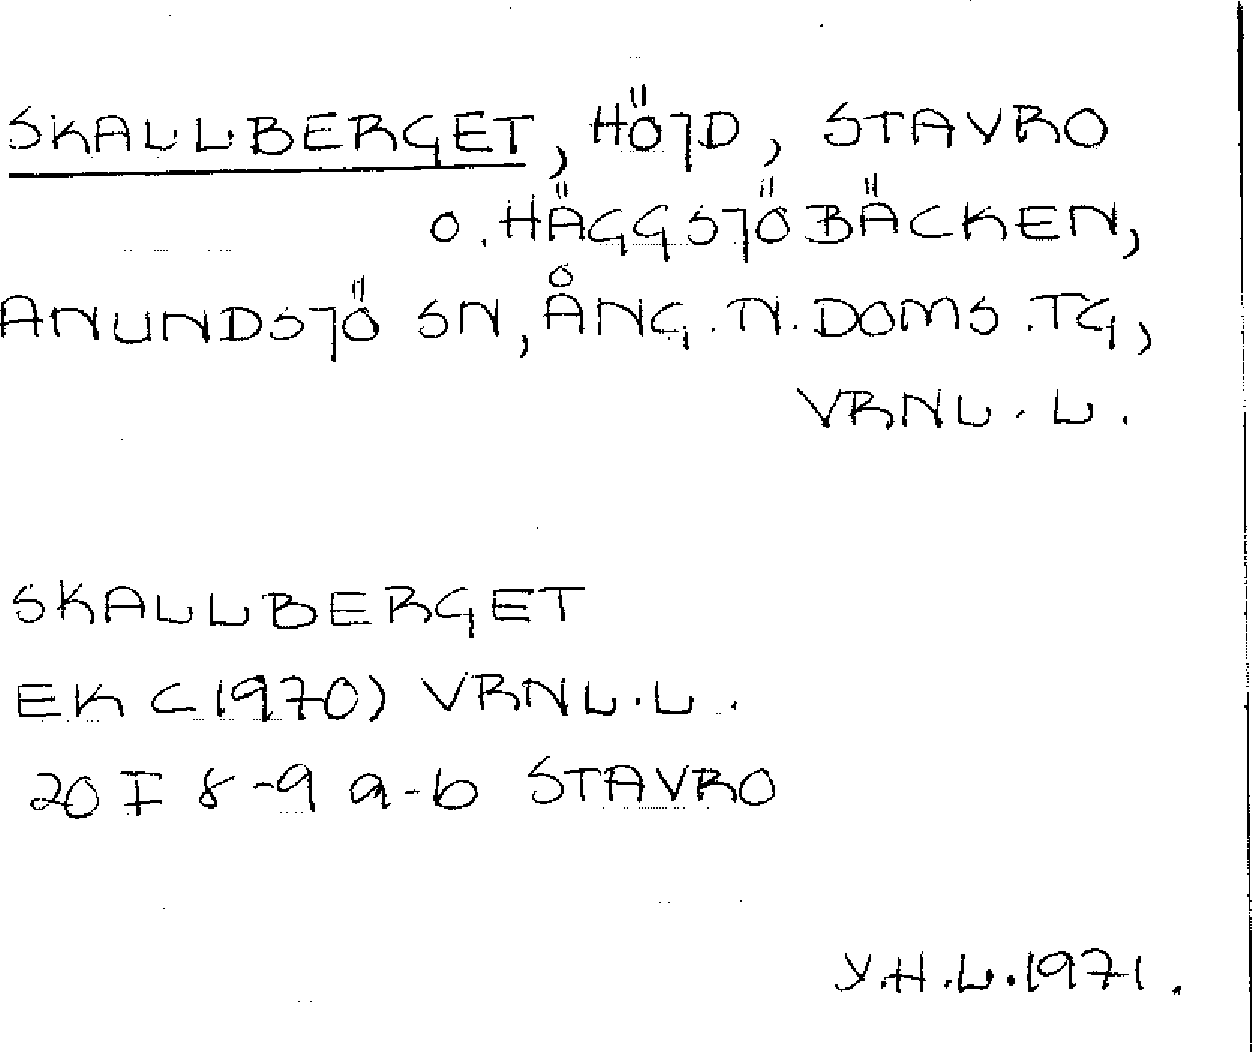 SKALLBERGET, HÖJD, STAVRO
O. HÄGGSJÖBÄCKEN,
ANUNDSJÖ SN, ÅNG. N. DOMS. TG,
VRNL. L.
SKALLBERGET
EK (1970) VRNL. L.
20 I 8-9 a-b STAVRO
Y.H.L. 1971.